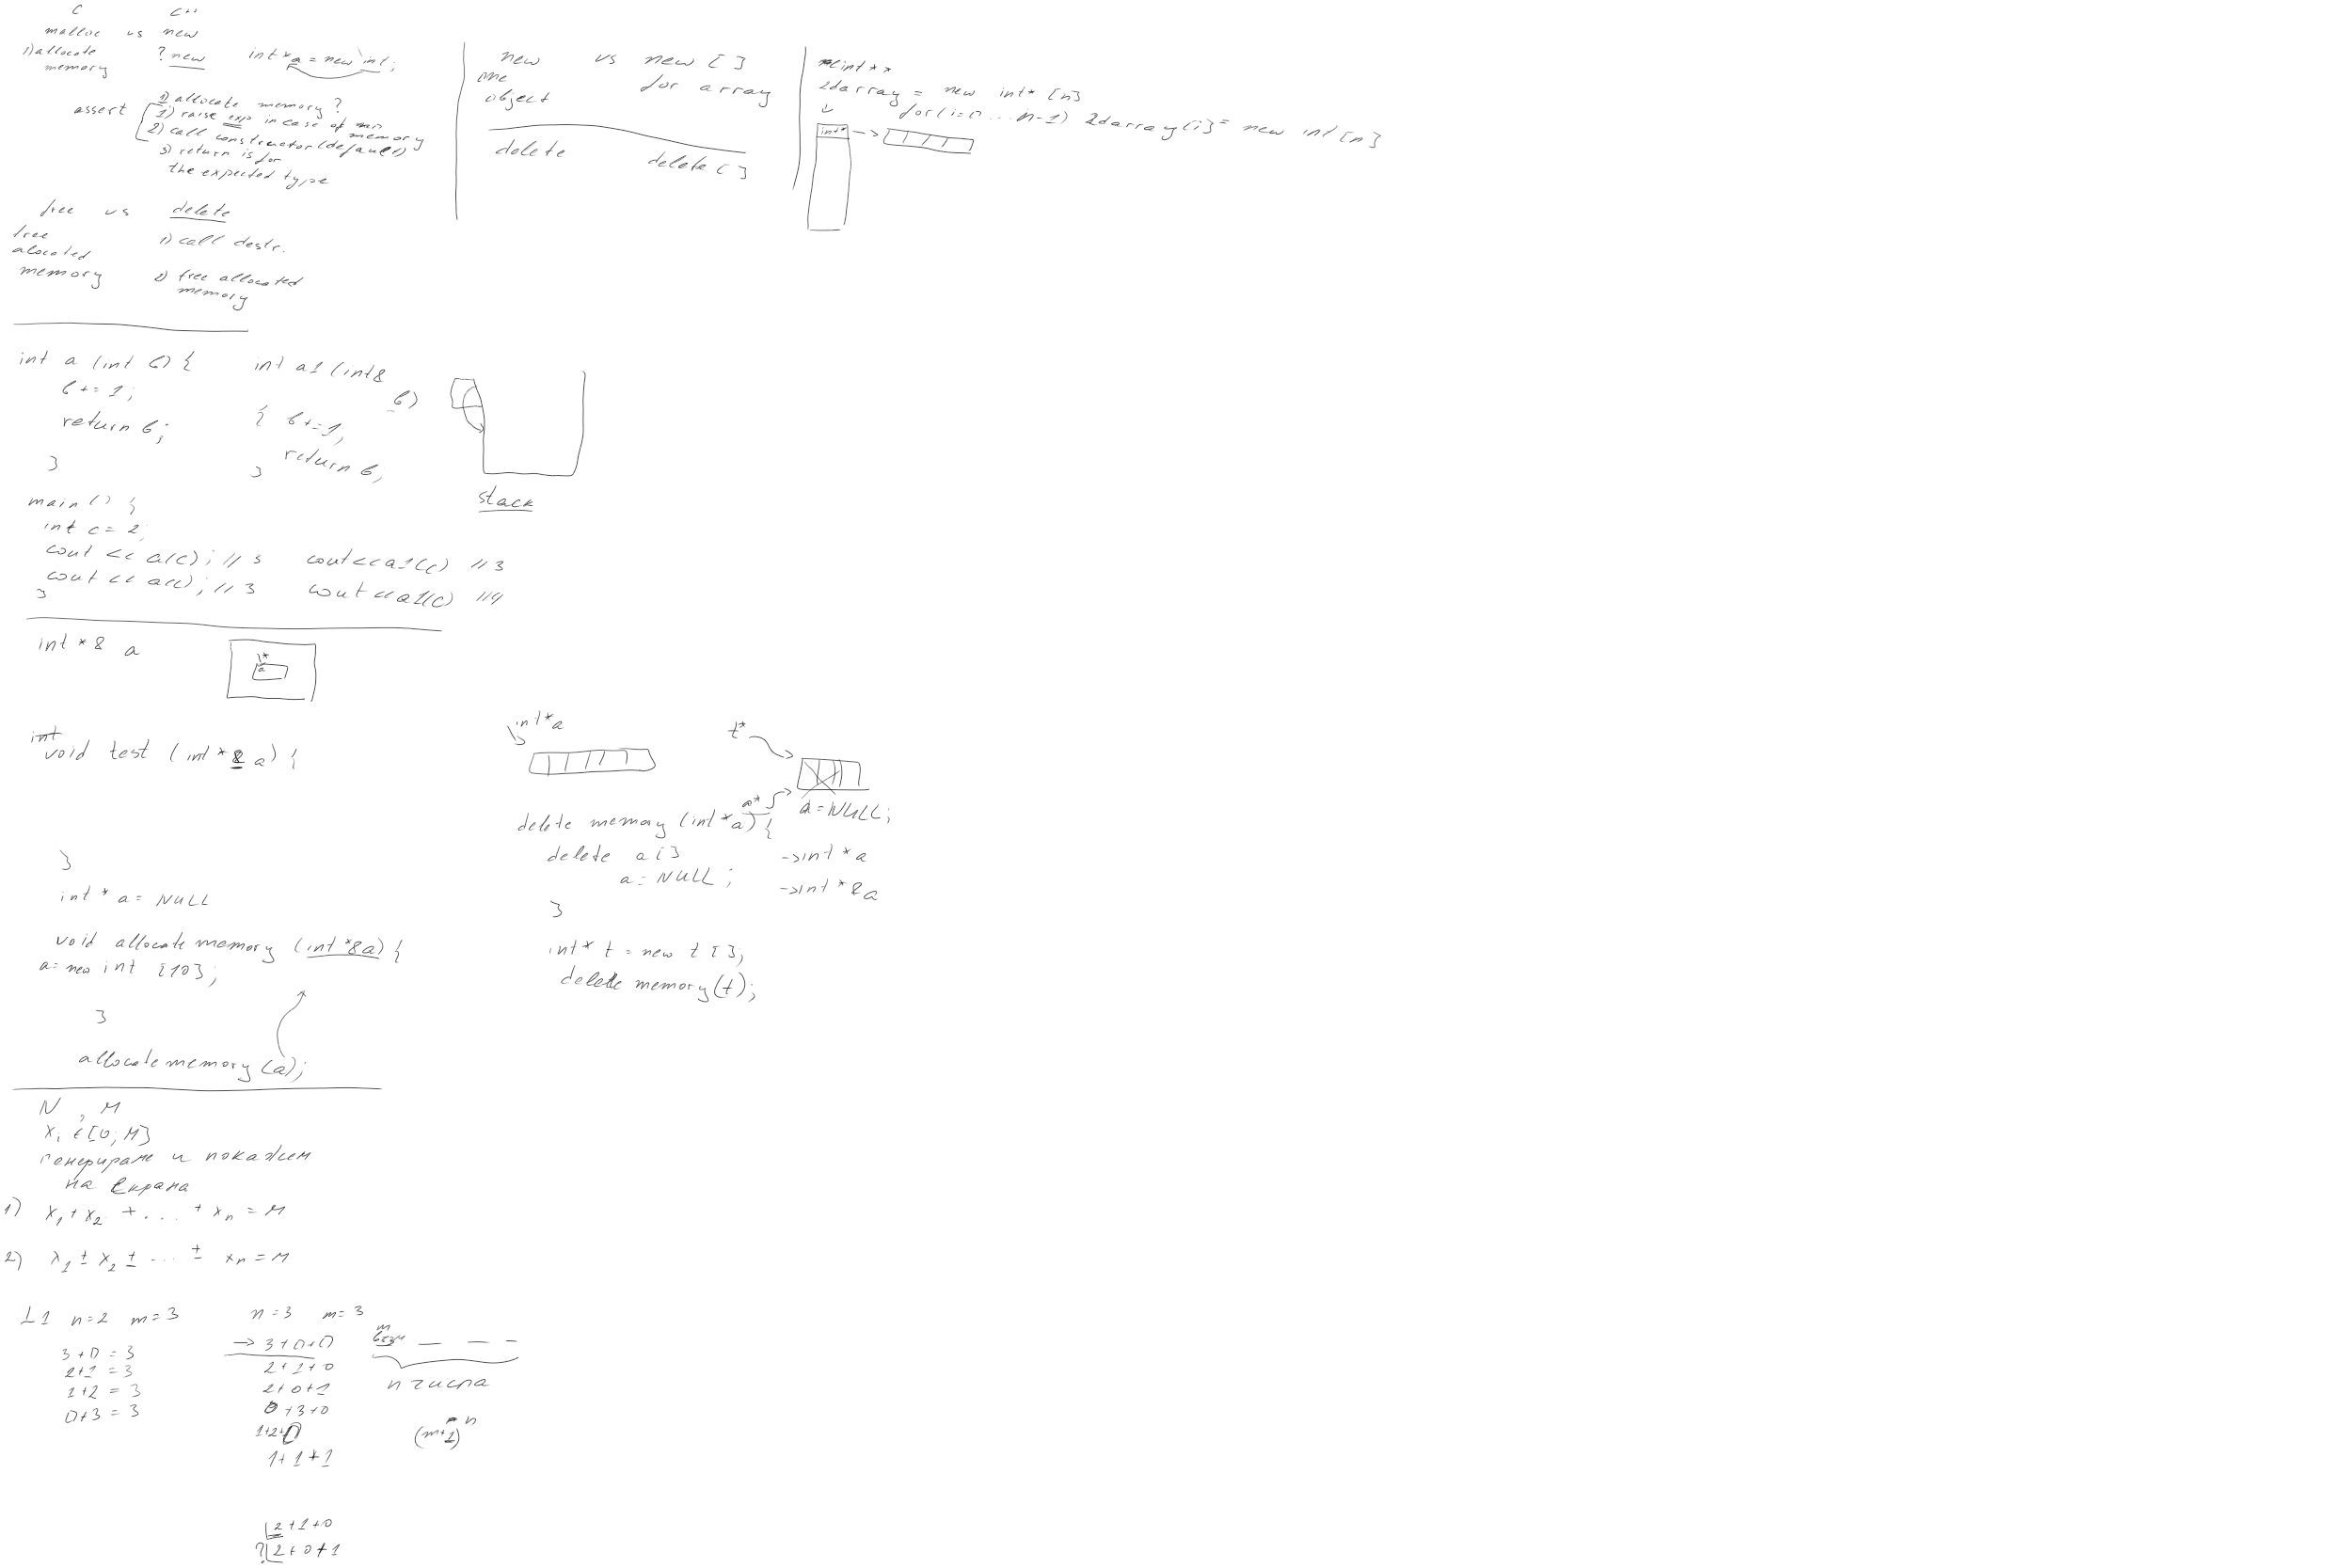 C C++
malloc vs new
1) allocate memory
? new int * a = new int;
assert
1) allocate memory?
1) raise exp in case of no memory
2) call constructor (default)
3) return is for
the expected type
free vs delete
free
alocated
memory
1) call destr.
2) free allocated
memory
new vs new [ ]
one
object
for array
delete delete [ ]
int * *
2darray = new int* [n]
for(i=0 ... n-1) 2darray[i] = new int [n]
int*
int a (int b) {
b += 1;
return b;
}
int a1 (int&
b)
{ b+=1;
return b;
}
stack
main () {
int c = 2;
cout << a(c); // 3 cout << a1(c) // 3
cout << a(c); // 3 cout << a1(c) // 4
}
int * & a
*
a
int
void test (int * & a) {
}
int * a = NULL
void allocate memory (int *& a) {
a = new int [10];
}
allocate memory (a);
int * a
t*
a*
a = NULL;
delete memory (int * a) {
delete a [ ]
a = NULL;
}
->int * a
->int * & a
int* t = new t [ ];
delete memory(t);
N , M
xi ∈ [0; M]
генерираме и покажем
на екрана
1) x1 + x2 + . . . + xn = M
2) x1 ± x2 ± ... ± xn = M
L1 n=2 m=3
3+0 = 3
2+1 = 3
1+2 = 3
0+3 = 3
n=3 m=3
-> 3+0+0
2+1+0
2+0+1
0+3+0
1+2+0
1+1+1
m
n числа
(m+1)^n
2+1+0
? 2+0+1